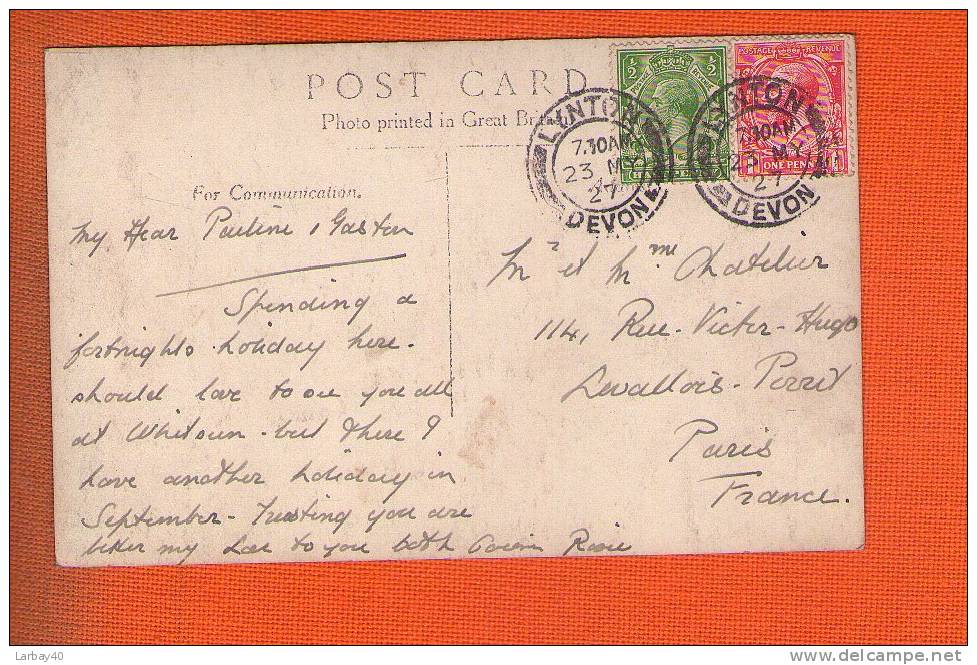 POST CARD
Photo printed in Great Britain
For Communication.
My Dear Pauline & Gaston
Spending a
fortnights holiday here.
should love to see you all
at Whitsun - but there I
have another holiday in
September - Trusting you are
my Love to you both Rosie
Mr et Mme Chatelier
114, Rue-Victor-Hugo
Levallois-Perret
Paris
France.
½ ½
POSTAGE REVENUE
ONE PENNY
LYNTON
7.30AM
23 MY
27
DEVON
LYNTON
7.30AM
23 MY
27
DEVON
Larbay40
www.delcampe.net